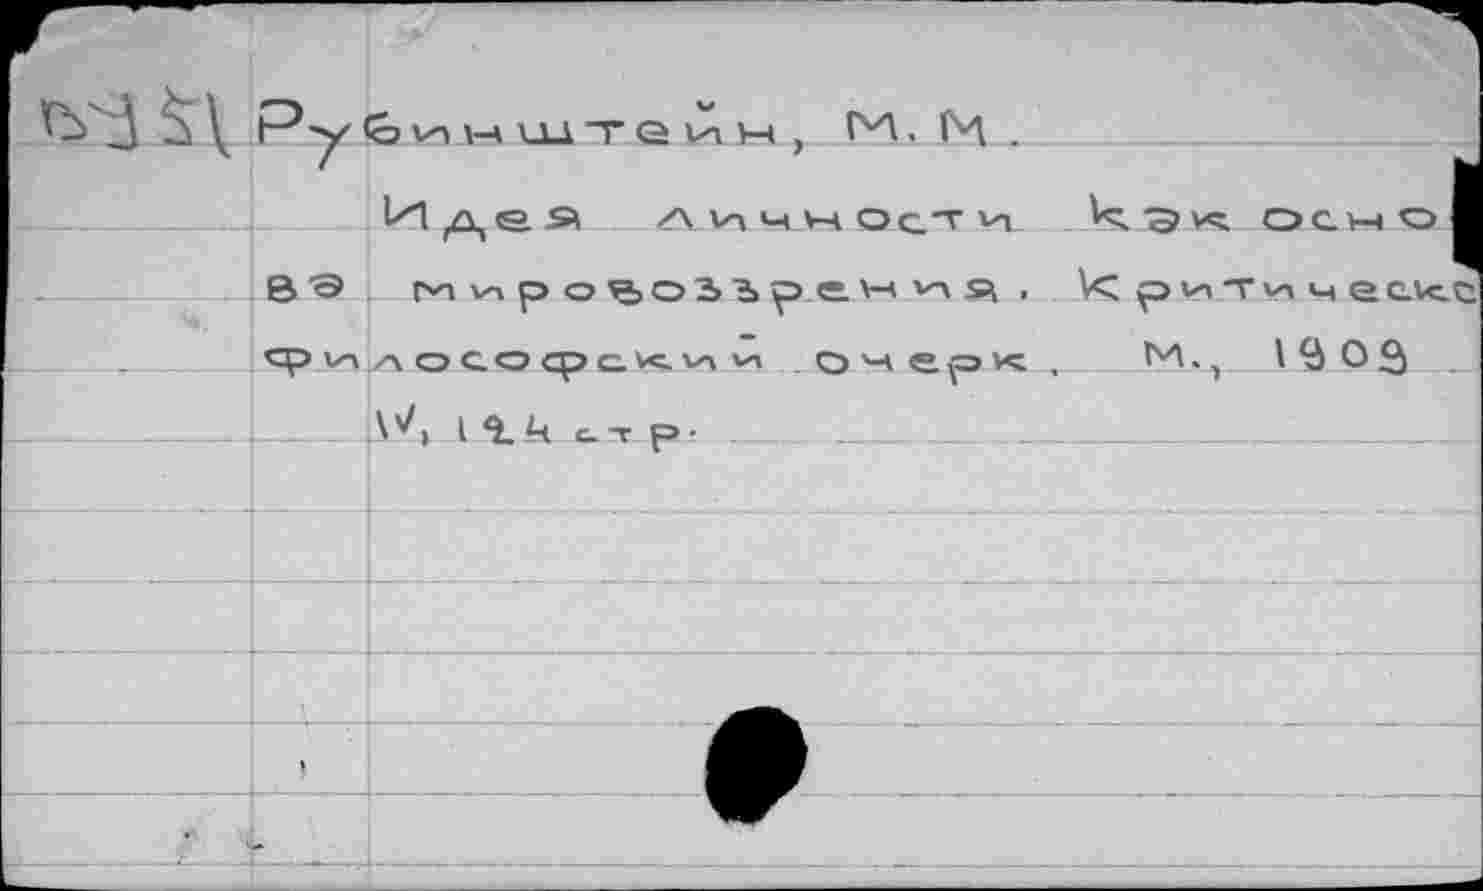 Рубинштейн, М. М.
Идея личности как осно
ва мировоззрения. Критическо
философский очерк. М., 1909
IV, 124 стр.